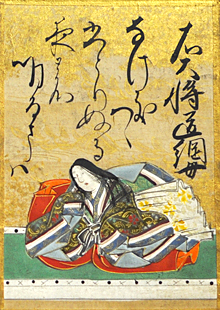 右大将道綱母
なけきつゝ
ひとりぬる
夜の
明るまハ